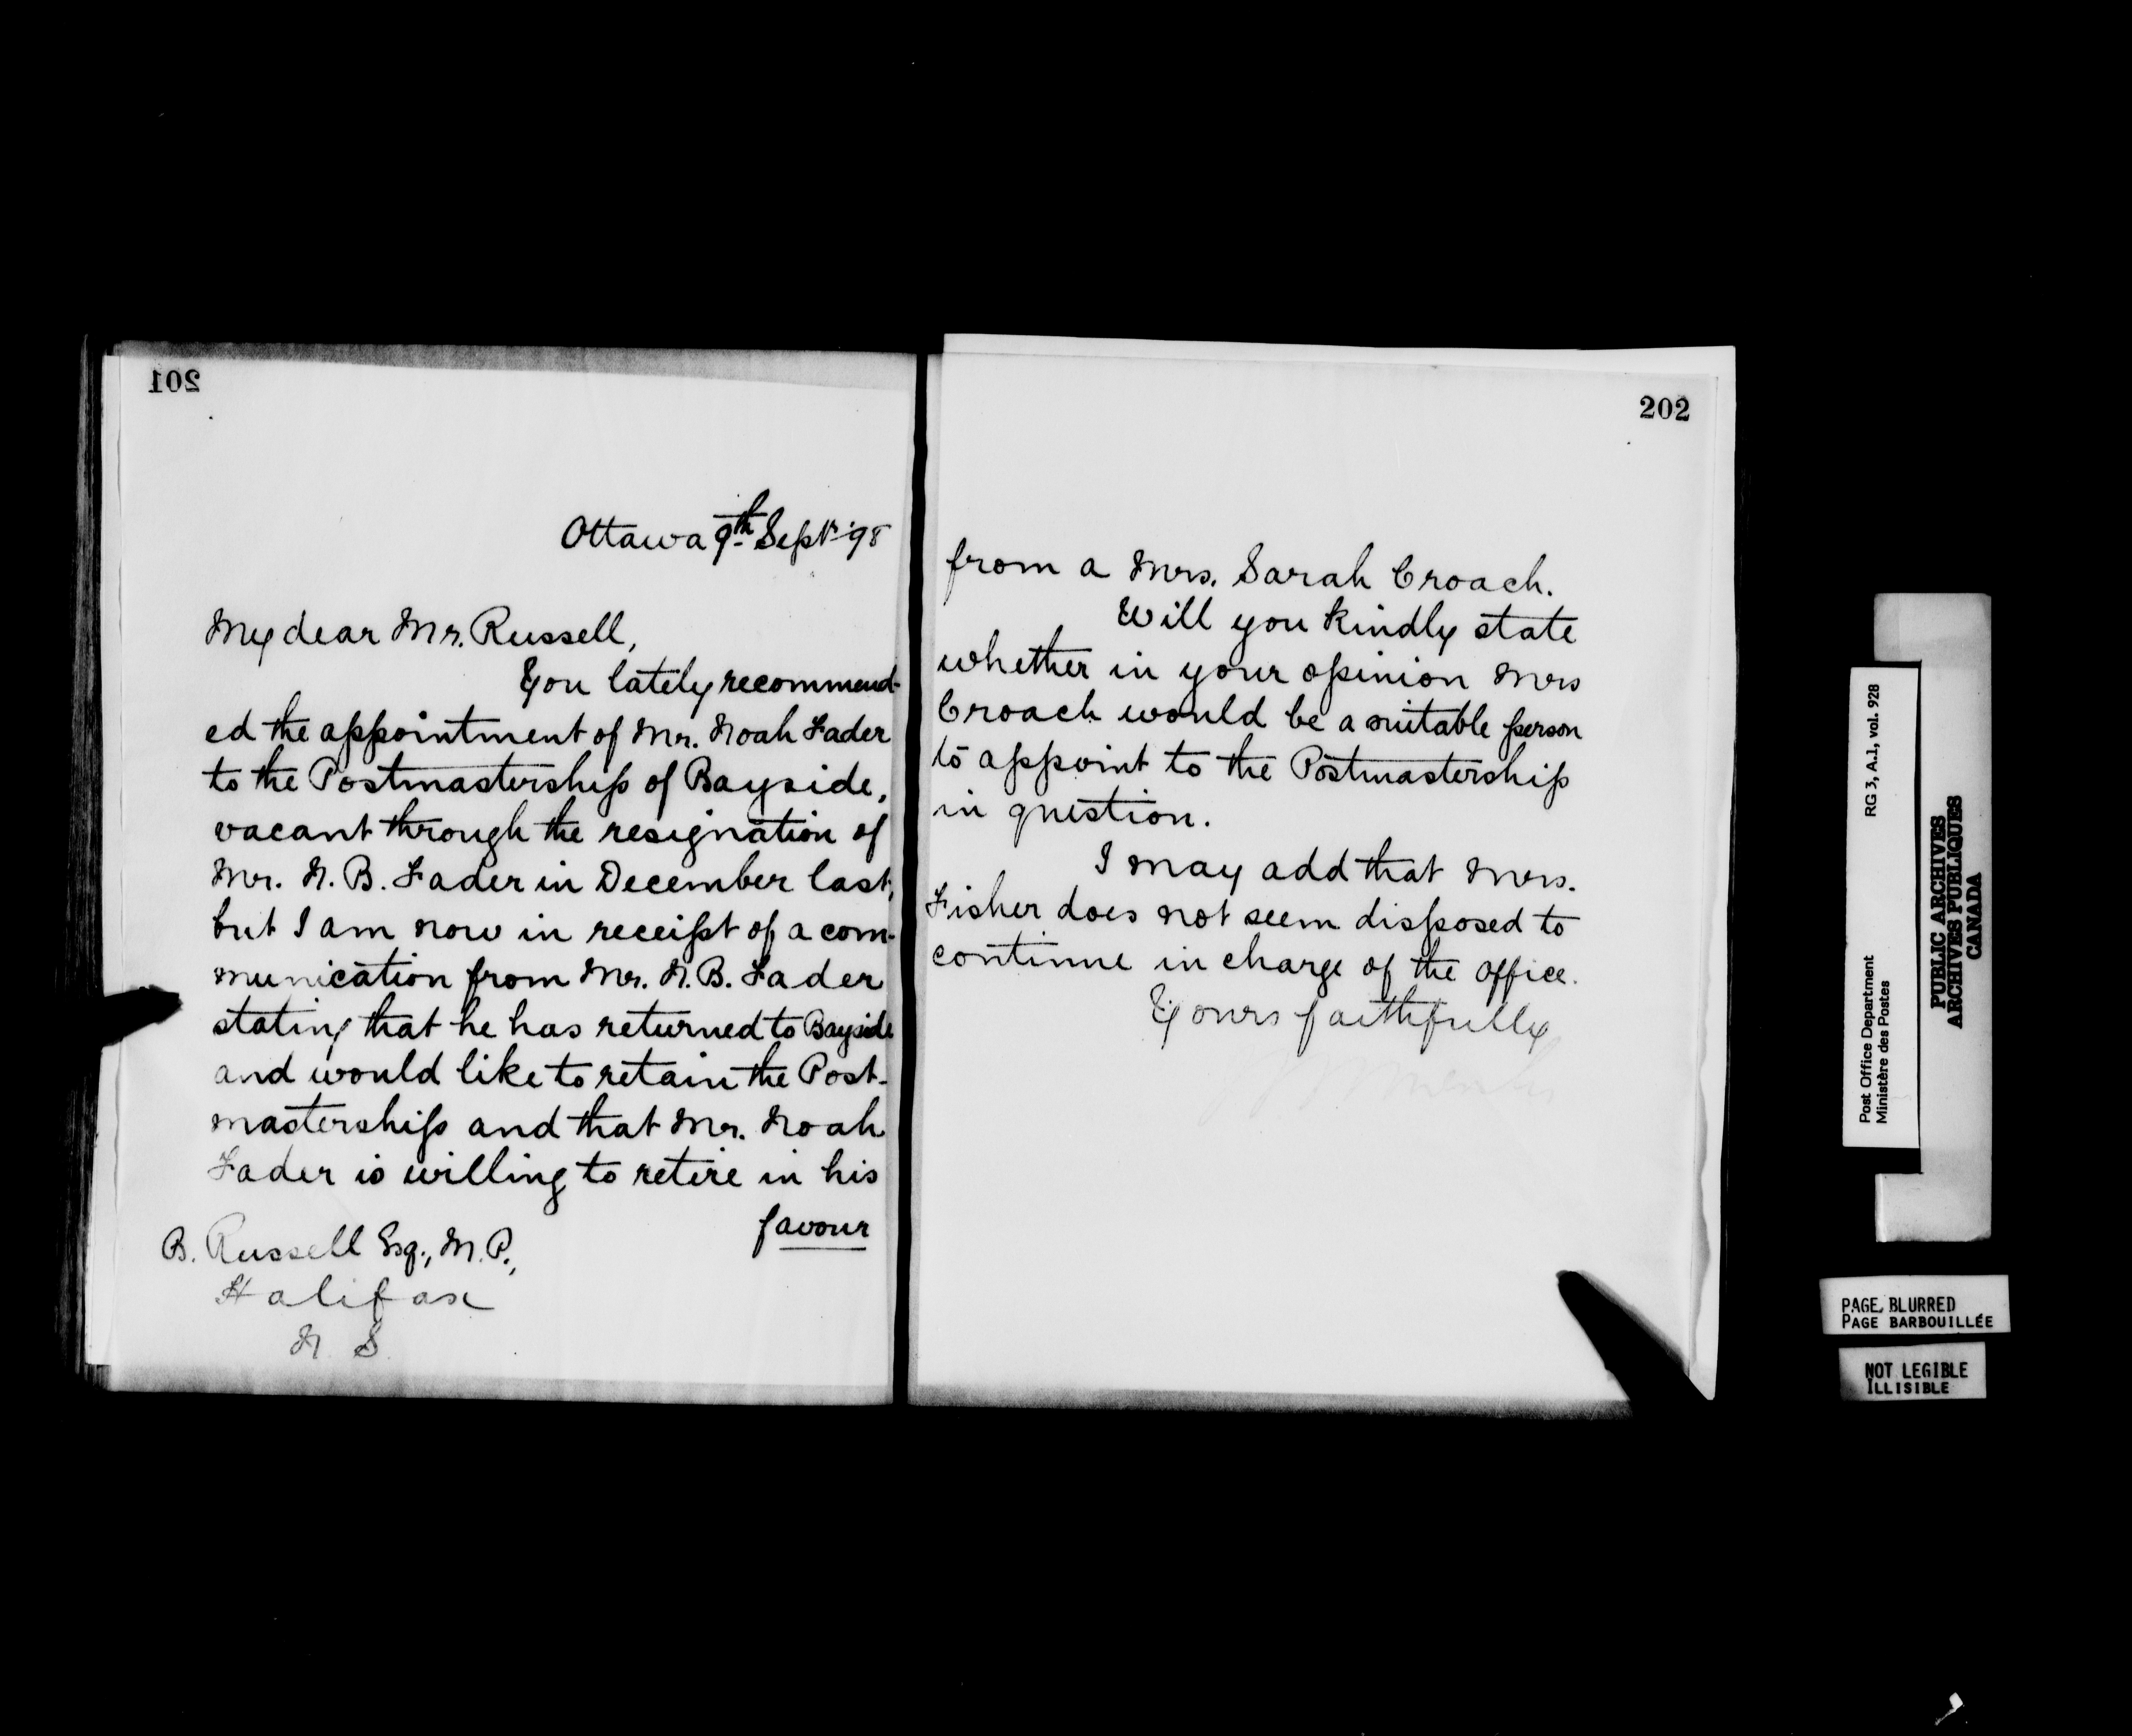 201
Ottawa 9th Sept '98
My dear Mr. Russell,
You lately recommend-
ed the appointment of Mr. Noah Fader
to the Postmastership of Bayside,
vacant through the resignation of
Mr. N. B. Fader in December last,
but I am now in receipt of a com-
munication from Mr. N. B. Fader
stating that he has returned to Bayside
and would like to retain the Post-
mastership and that Mr. Noah
Fader is willing to retire in his
favour
B. Russell Esq., M.P.,
Halifax
N S
202
from a Mrs. Sarah Croach.
Will you kindly state
whether in your opinion Mrs
Croach would be a suitable person
to appoint to the Postmastership
in question.
I may add that Mrs.
Fisher does not seem disposed to
continue in charge of the office.
Yours faithfully
Post Office Department RG 3, A.1, vol. 928
Ministère des Postes
PUBLIC ARCHIVES
ARCHIVES PUBLIQUES
CANADA
PAGE BLURRED
PAGE BARBOUILLÉE
NOT LEGIBLE
ILLISIBLE